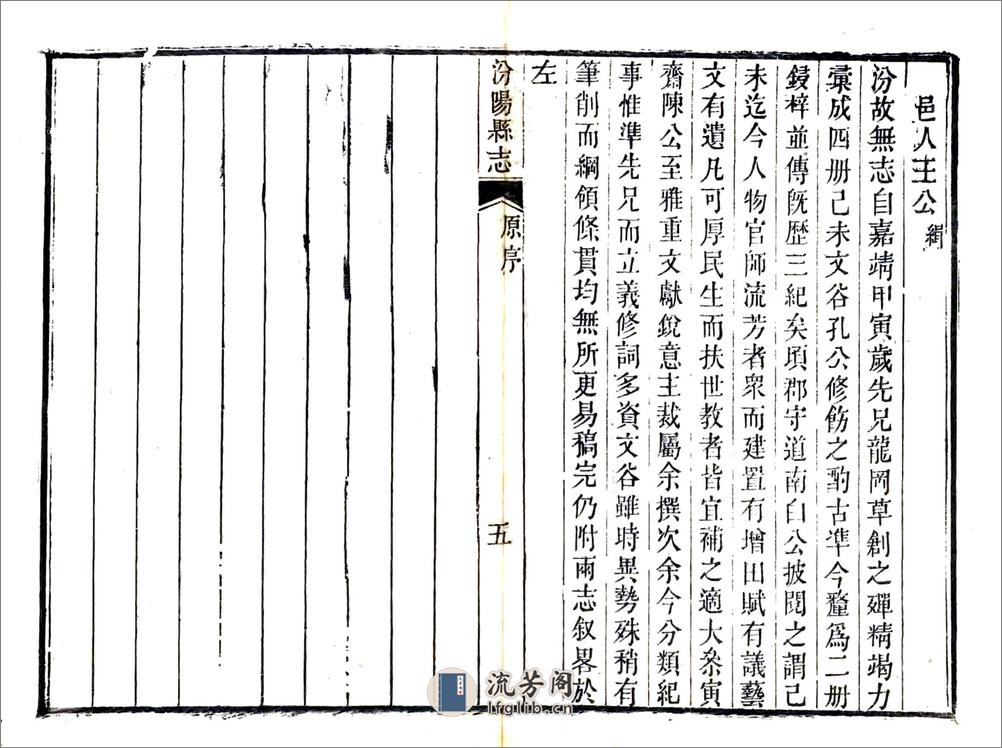 邑人王公緝
汾故無志自嘉靖甲寅歲先兄龍岡草創之殫精竭力
彙成四册己未文谷孔公修飭之酌古準今釐爲二册
鋟梓並傳旣歷三紀矣頃郡守道南白公披閱之謂己
未迄今人物官師流芳者衆而建置有增田賦有議藝
文有遺凡可厚民生而扶世教者皆宜補之適大叅寅
齋陳公至雅重文獻銳意主裁屬余撰次余今分類紀
事惟準先兄而立義修詞多資文谷雖時異勢殊稍有
筆削而綱領條貫均無所更易稿完仍附兩志叙畧於
左
汾陽縣志
原序
五
流芳阁
lfglib.cn